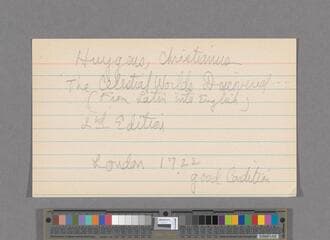 Huygens, Christianus
"The Celestial Worlds Discovered - - -
(From Latin into English)
2nd Edition
London 1722
good Condition